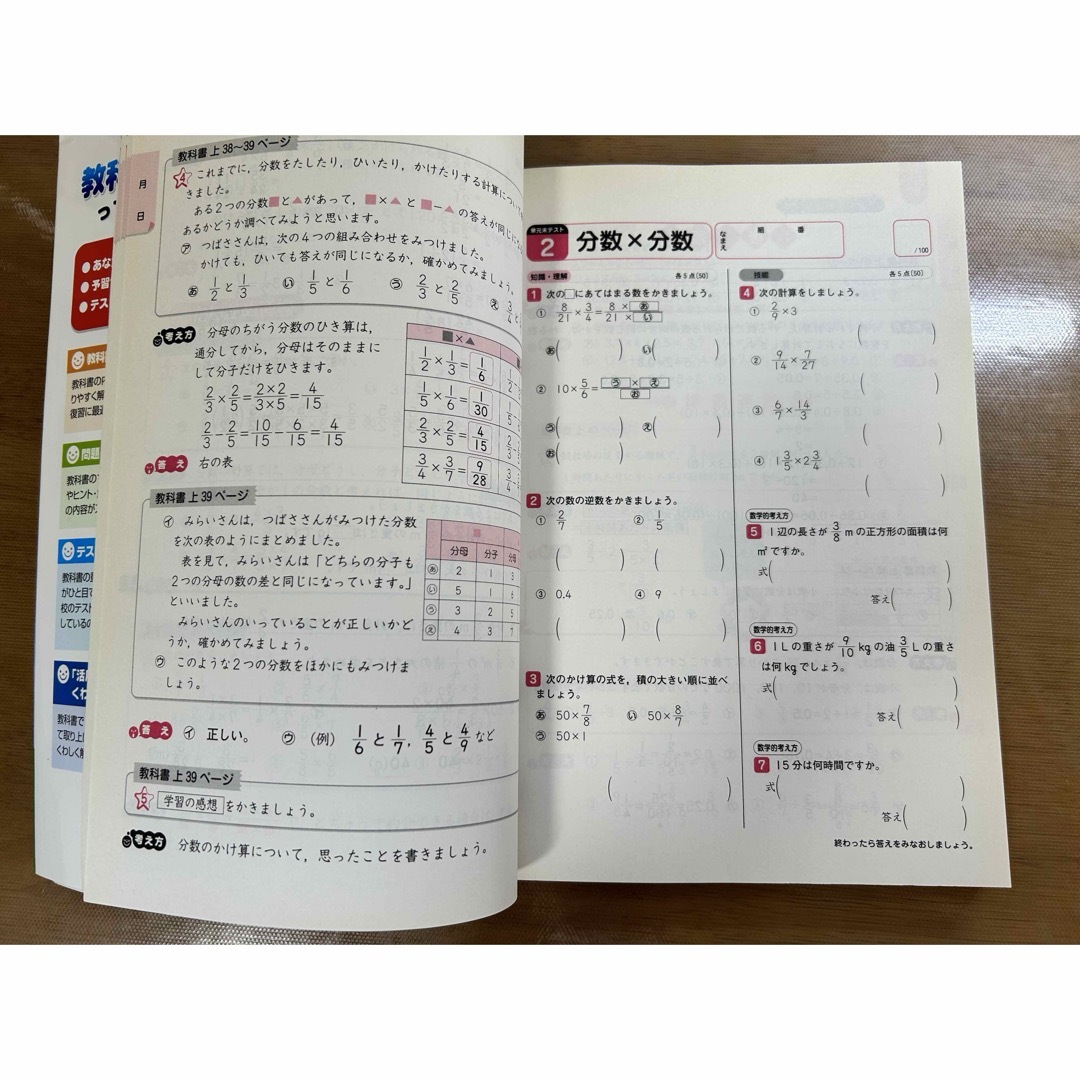 教科
っ
●あな
●予習
●テス
教科
教科書のP
りやすく解
復習に最適
問題
教科書の
やヒント・
の内容が
テス
教科書の
がひと目で
校のテスト
しているの
「活用
くわ
教科書で
て取り上
くわしく解
月
日
教科書 上 38〜39 ページ
4 これまでに，分数をたしたり，ひいたり，かけたりする計算について
きました。
ある2つの分数■と▲があって，■×▲ と ■−▲ の答えが同じにな
あるかどうか調べてみようと思います。
㋐ つばささんは，次の4つの組み合わせをみつけました。
かけても，ひいても答えが同じになるか，確かめてみましょう。
あ 1/2 と 1/3 い 1/5 と 1/6 う 2/3 と 2/5 え 3/4 と
考え方 分母のちがう分数のひき算は，
通分してから，分母はそのままに
して分子だけをひきます。
2/3 × 2/5 = 2×2/3×5 = 4/15
2/3 − 2/5 = 10/15 − 6/15 = 4/15
答え 右の表
■×▲
1/2 × 1/3 = 1/6
1/5 × 1/6 = 1/30
2/3 × 2/5 = 4/15
3/4 × 3/7 = 9/28
教科書 上 39 ページ
㋑ みらいさんは，つばささんがみつけた分数
を次の表のようにまとめました。
表を見て，みらいさんは「どちらの分子も
2つの分母の数の差と同じになっています。」
といいました。
みらいさんのいっていることが正しいかど
うか，確かめてみましょう。
㋒ このような2つの分数をほかにもみつけま
しょう。
分母 分子 分母
あ 2 1 3
い 5 1 6
う 3 2 5
え 4 3 7
答え ㋑ 正しい。 ㋒ （例） 1/6 と 1/7，4/5 と 4/9 など
教科書 上 39 ページ
5 学習の感想 をかきましょう。
考え方 分数のかけ算について，思ったことを書きましょう。
単元末テスト
2 分数×分数
なまえ 組 番
/100
知識・理解 各5点(50)
1 次の□にあてはまる数をかきましょう。
① 8/21 × 3/4 = 8 × あ/21 × い
あ( ) い( )
② 10 × 5/6 = う × え/お
う( ) え( )
お( )
2 次の数の逆数をかきましょう。
① 2/7 ② 1/5
( ) ( )
③ 0.4 ④ 9
( ) ( )
3 次のかけ算の式を，積の大きい順に並べ
ましょう。
あ 50×7/8 い 50×8/7
う 50×1
( )
技能 各5点(50)
4 次の計算をしましょう。
① 2/9 ×3
( )
② 9/14 × 7/27
( )
③ 6/7 × 14/3
( )
④ 1 3/5 × 2 3/4
( )
数学的考え方
5 1辺の長さが 3/8 m の正方形の面積は何
m²ですか。
式( )
答え( )
数学的考え方
6 1Lの重さが 9/10 kg の油 3/5 L の重さ
は何kgでしょう。
式( )
答え( )
数学的考え方
7 15分は何時間ですか。
式( )
答え( )
終わったら答えをみなおしましょう。